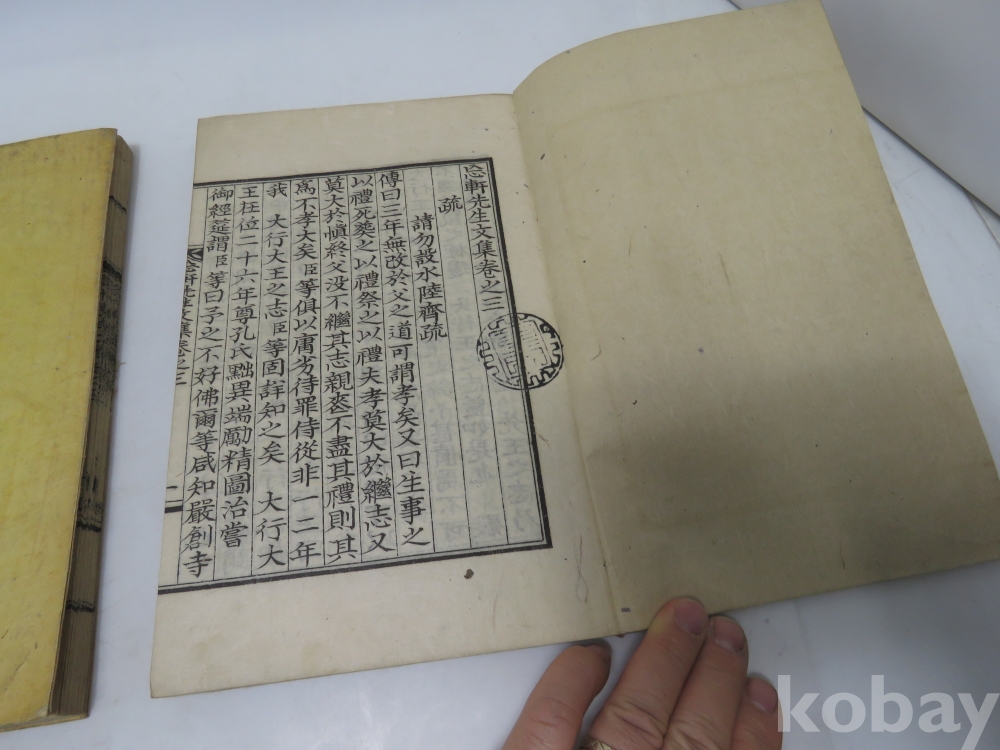 忘軒先生文集卷之三
疏
請勿設水陸齊疏
傳曰三年無改於父之道可謂孝矣又曰生事之
以禮死葬之以禮祭之以禮夫孝莫大於繼志又
莫大於愼終父没不繼其志親喪不盡其禮則其
爲不孝大矣臣等俱以庸劣待罪侍從非一二年
我 大行大王之志臣等固詳知之矣 大行大
王在位二十六年尊孔氏黜異端勵精圖治嘗
御經筵謂臣等曰予之不好佛爾等咸知嚴創寺
忘軒先生文集卷之三
kobay